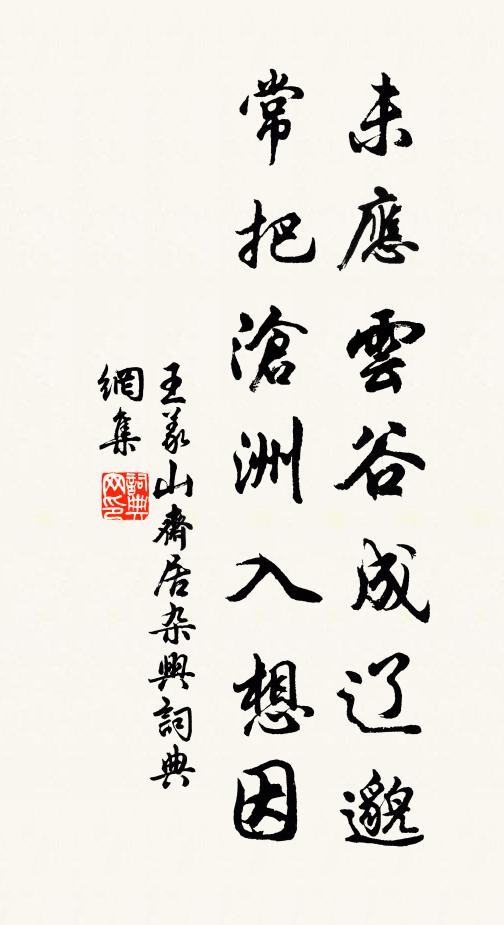 未應雲谷成辽邈
常把滄洲入想因
王义山齋居杂興詞典
網集
詞典
网印